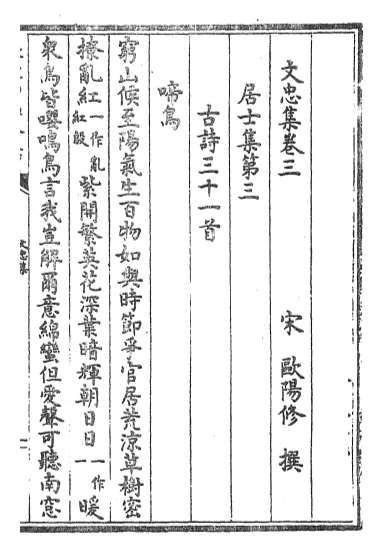 文忠集卷三 宋 歐陽修 撰
居士集第三
古詩三十一首
啼鳥
窮山候至陽氣生百物如與時節爭官居荒涼草樹密
撩亂紅一作亂紅殷紫開繁英花深葉暗輝朝日日一作一暖
衆鳥皆嚶鳴鳥言我豈解爾意綿蠻但愛聲可聽南窓